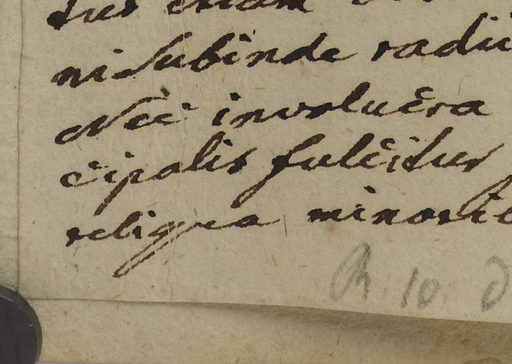 tus etiam
ni subinde radii
Nec involucra
cipalis fulcitur
reliqua minori
R. 10.